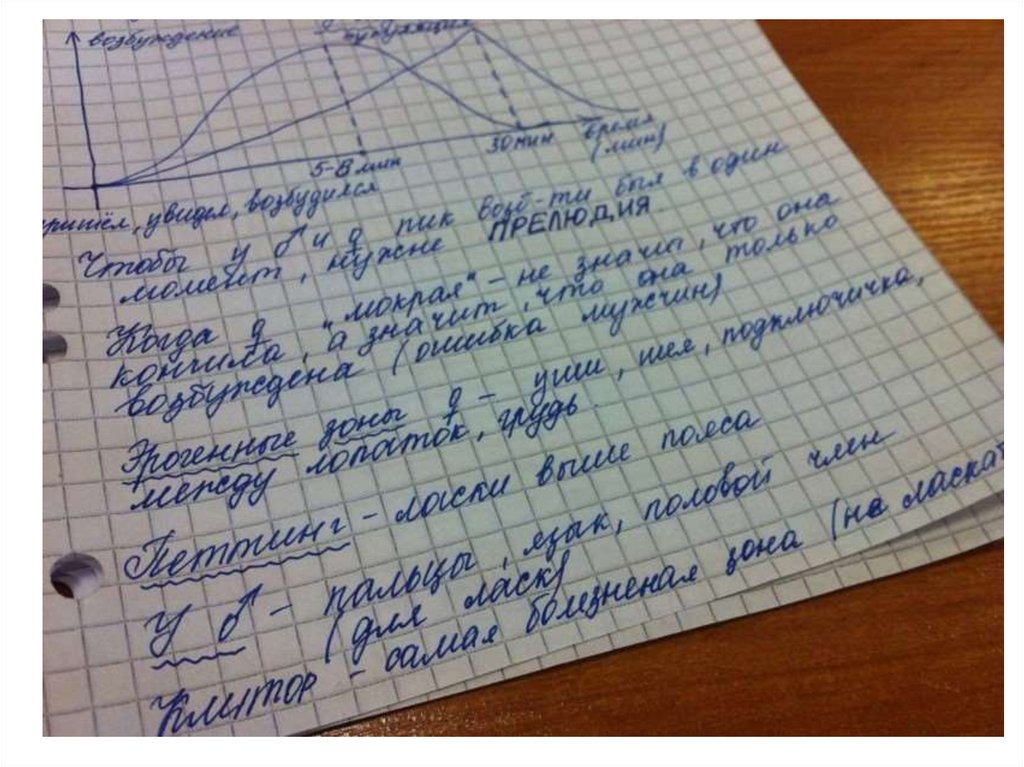 возбуждение
5-8 мин
30 мин
время
(мин)
пришёл, увидел, возбудился
Чтобы у ♂ и ♀ пик возб-ти был в один
момент, нужне ПРЕЛЮДИЯ.
Когда ♀ "мокрая" - не значит, что она
кончила, а значит, что она только
возбуждена (ошибка мужчин)
Эрогенные зоны ♀ - уши, шея, подключичка,
между лопаток, грудь.
Петтинг - ласки выше пояса
У ♂ - пальцы, язык, половой член
(для ласк)
Клитор - самая болезненая зона (не ласкать